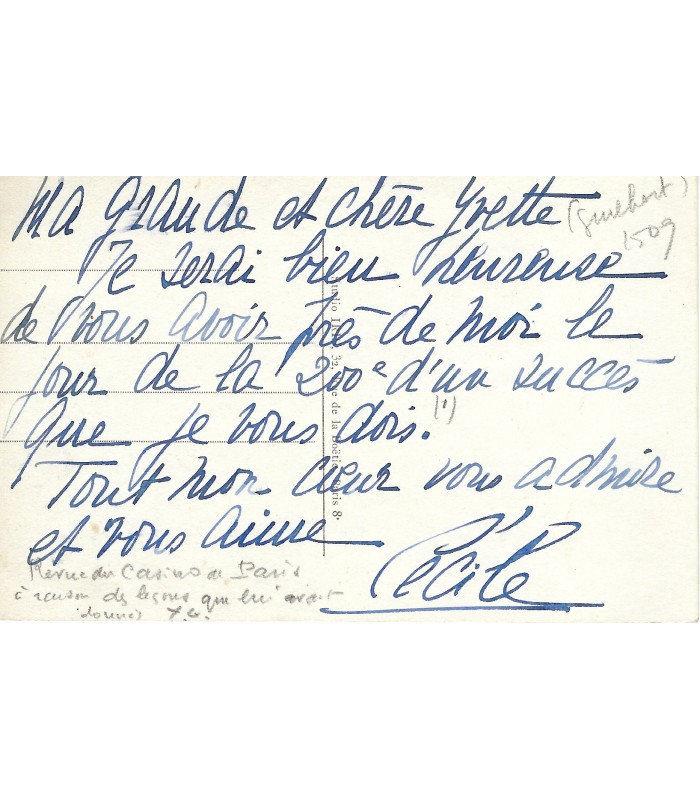 Ma grande et chère Yvette (Guilbert)
150g
Je serai bien heureuse
de vous avoir près de moi le
jour de la 200e d'un succès
que je vous dois. (1)
Tout mon cœur vous admire
et vous aime
Cécile
Revue du Casino de Paris
à raison des leçons que lui avait
données Y. G.
Studio 32, rue de la Boëtie Paris 8e